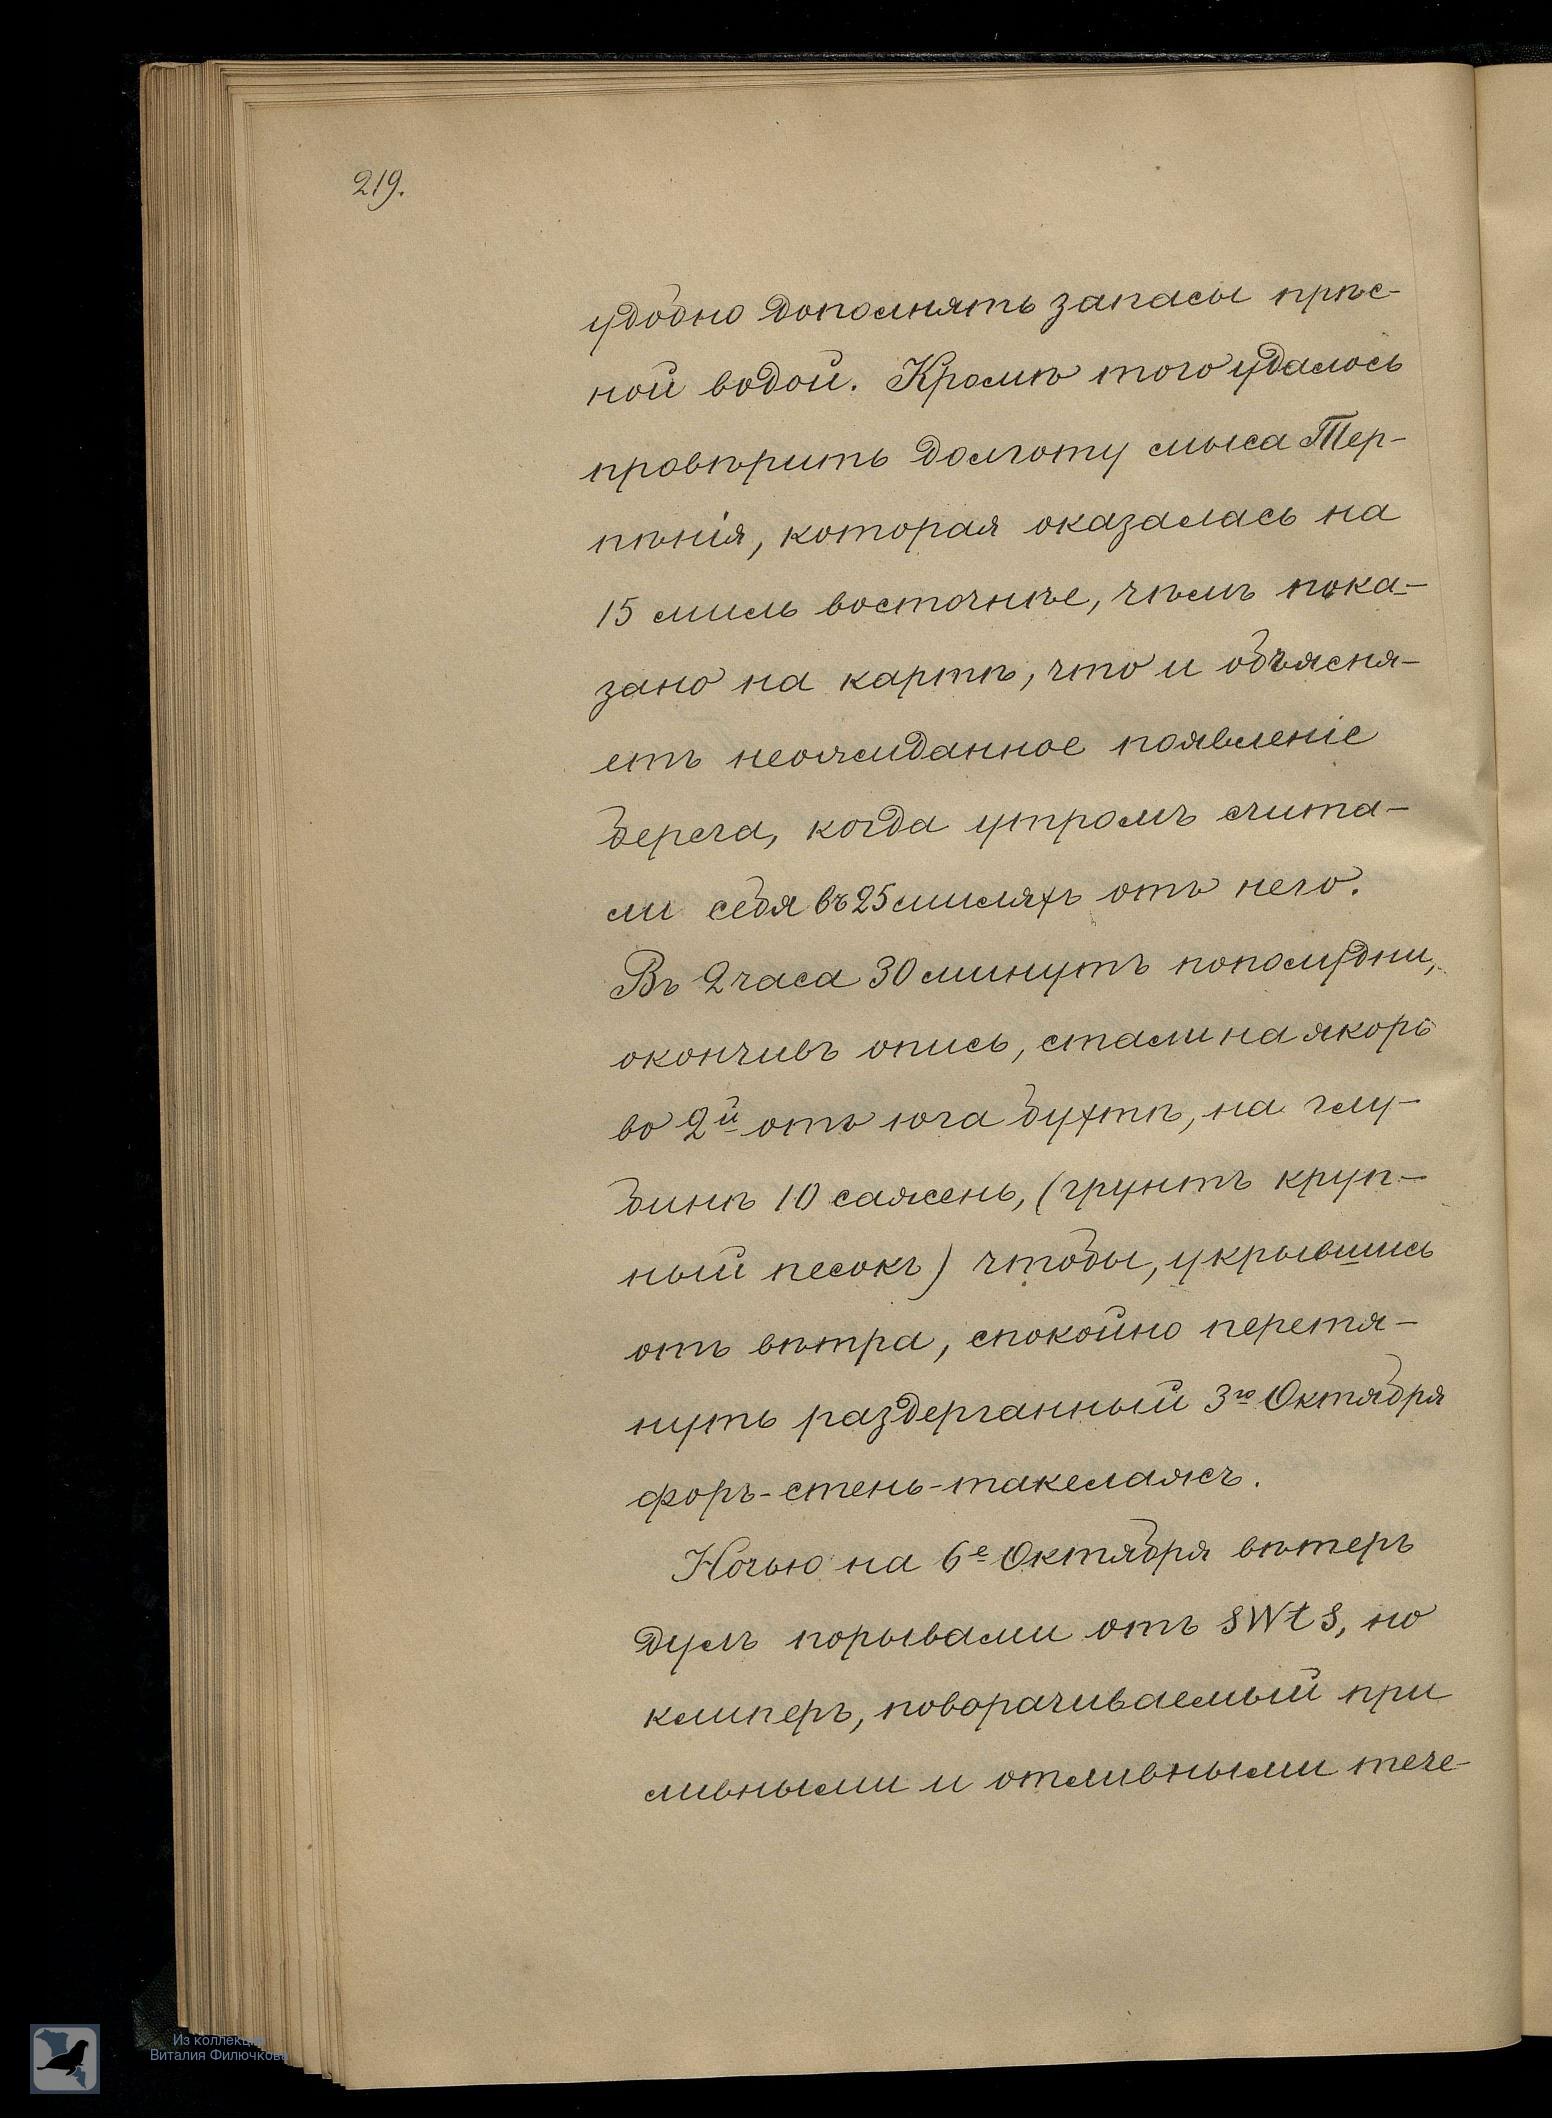 219.
удобно дополнять запасы прѣс-
ной водой. Кромѣ того удалось
провѣрить долготу мыса Тер-
пѣнія, которая оказалась на
15 миль восточнѣе, чѣмъ пока-
зано на картѣ, что и объясня-
етъ неожиданное появленіе
берега, когда утромъ счита-
ли себя въ 25 миляхъ отъ него.
Въ 2 часа 30 минутъ пополудни,
окончивъ опись, стали на якорь
во 2й отъ юга бухтѣ, на глу-
бинѣ 10 сажень, (грунтъ круп-
ный песокъ) чтобы, укрывшись
отъ вѣтра, спокойно перетя-
нуть раздерганный 3го Октября
форъ-стень-такелажъ.
Ночью на 6е Октября вѣтеръ
дулъ порывами отъ SWtS, но
клиперъ, поворачиваемый при
ливными и отливными тече-
Из коллекции
Виталия Филючкова